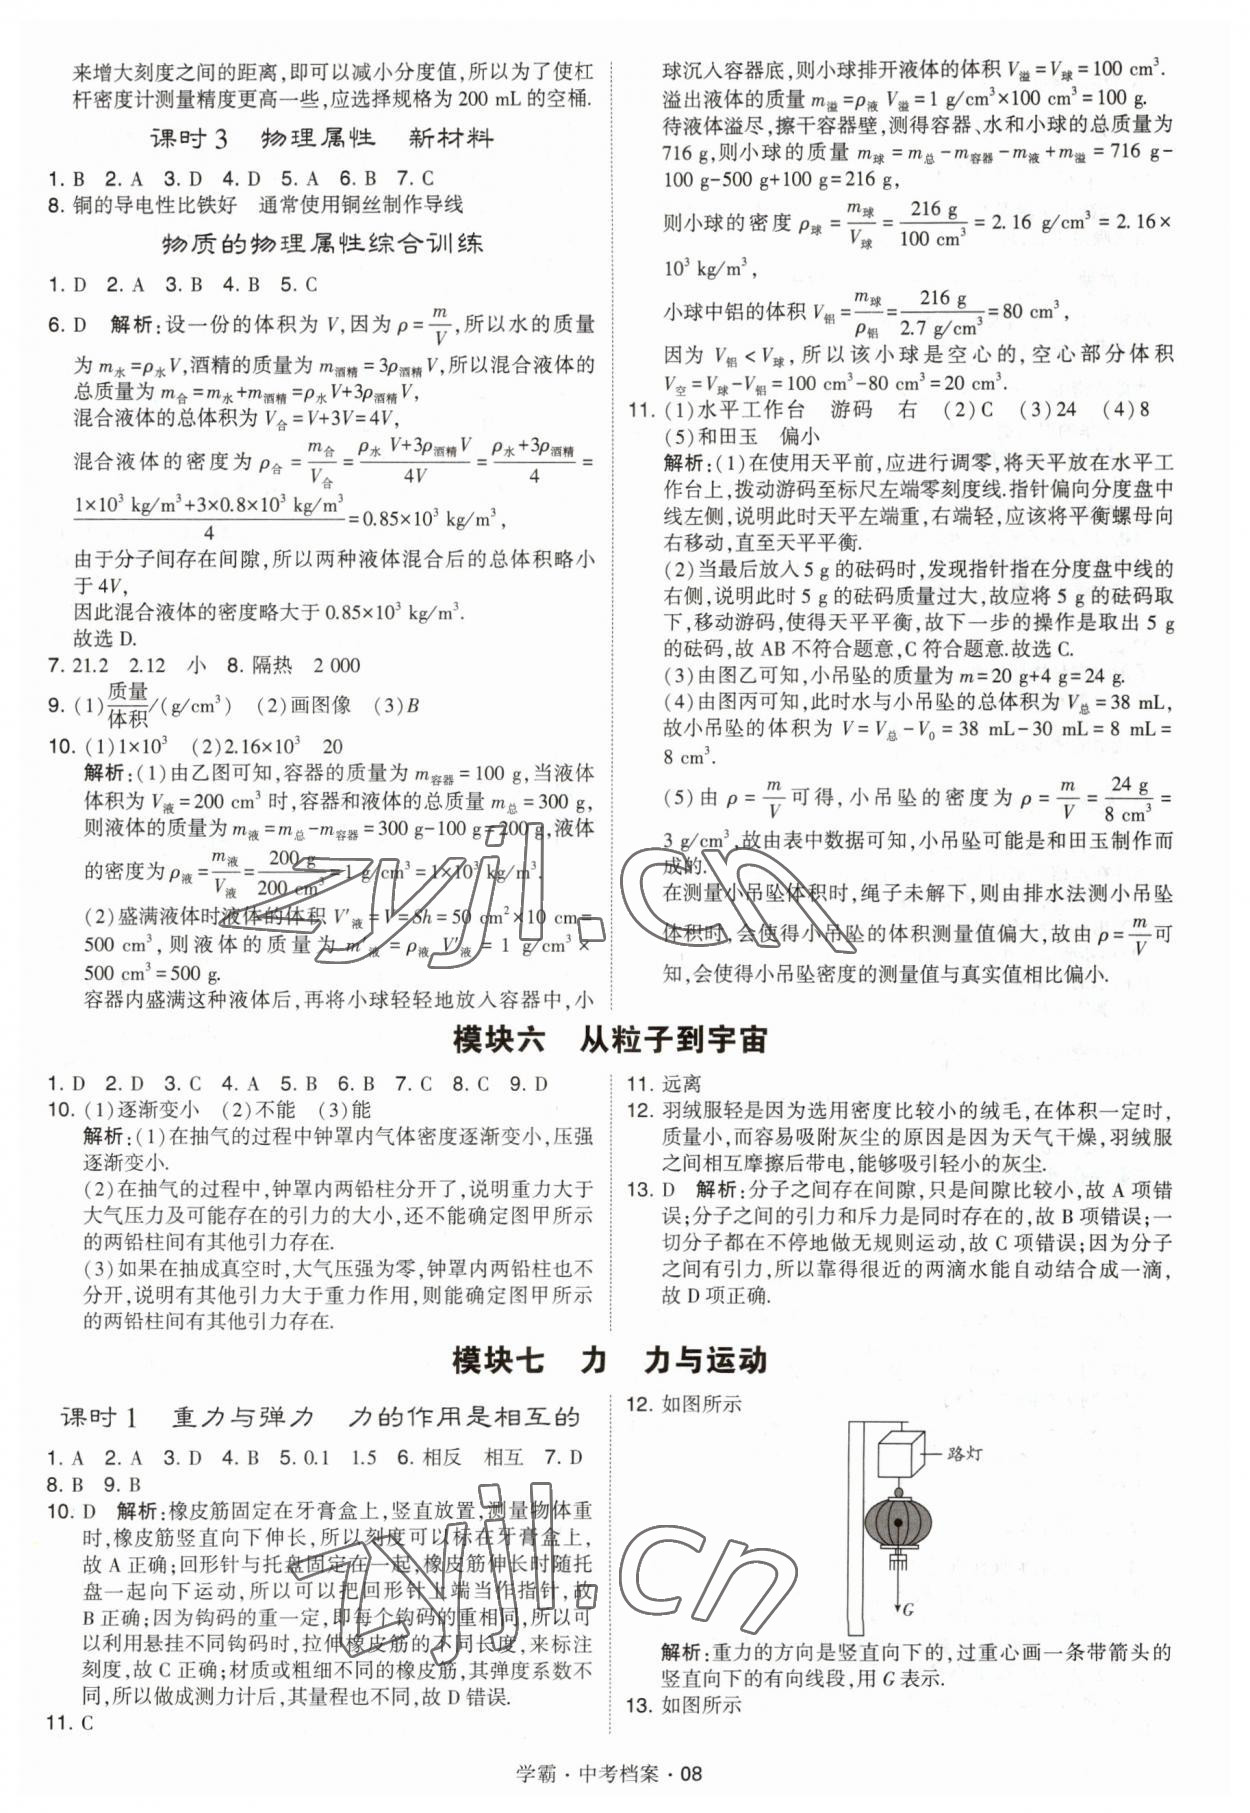 来增大刻度之间的距离,即可以减小分度值,所以为了使杠
杆密度计测量精度更高一些,应选择规格为 200 mL 的空桶.
课时3　物理属性　新材料
1. B　2. A　3. D　4. D　5. A　6. B　7. C
8. 铜的导电性比铁好　通常使用铜丝制作导线
物质的物理属性综合训练
1. D　2. A　3. B　4. B　5. C
6. D　解析:设一份的体积为 V,因为 ρ = m/V,所以水的质量
为 m水=ρ水V,酒精的质量为 m酒精=3ρ酒精V,所以混合液体的
总质量为 m合=m水+m酒精=ρ水V+3ρ酒精V,
混合液体的总体积为 V合=V+3V=4V,
混合液体的密度为 ρ合 = m合/V合 = (ρ水 V+3ρ酒精 V)/4V = (ρ水+3ρ酒精)/4 =
(1×10³ kg/m³+3×0.8×10³ kg/m³)/4 =0.85×10³ kg/m³,
由于分子间存在间隙,所以两种液体混合后的总体积略小
于 4V,
因此混合液体的密度略大于 0.85×10³ kg/m³.
故选 D.
7. 21.2　2.12　小　8. 隔热　2 000
9. (1)质量/体积/(g/cm³)　(2)画图像　(3)B
10. (1)1×10³　(2)2.16×10³　20
解析:(1)由乙图可知,容器的质量为 m容器=100 g,当液体
体积为 V液=200 cm³ 时,容器和液体的总质量 m总=300 g,
则液体的质量为 m液=m总-m容器=300 g-100 g=200 g,液体
的密度为 ρ液=m液/V液=200 g/200 cm³=1 g/cm³=1×10³ kg/m³.
(2)盛满液体时液体的体积 V′液=V=Sh=50 cm²×10 cm=
500 cm³, 则液体的质量为 m′液 = ρ液 V′液 = 1 g/cm³ ×
500 cm³=500 g.
容器内盛满这种液体后,再将小球轻轻地放入容器中,小
球沉入容器底,则小球排开液体的体积 V溢=V球=100 cm³.
溢出液体的质量 m溢=ρ液 V溢=1 g/cm³×100 cm³=100 g.
待液体溢尽,擦干容器壁,测得容器、水和小球的总质量为
716 g,则小球的质量 m球=m总-m容器-m液+m溢=716 g-
100 g-500 g+100 g=216 g,
则小球的密度 ρ球 = m球/V球 = 216 g/100 cm³ = 2.16 g/cm³ = 2.16×
10³ kg/m³,
小球中铝的体积 V铝=m球/ρ铝=216 g/2.7 g/cm³=80 cm³,
因为 V铝<V球,所以该小球是空心的,空心部分体积
V空=V球-V铝=100 cm³-80 cm³=20 cm³.
11. (1)水平工作台　游码　右　(2)C　(3)24　(4)8
(5)和田玉　偏小
解析:(1)在使用天平前,应进行调零,将天平放在水平工
作台上,拨动游码至标尺左端零刻度线.指针偏向分度盘中
线左侧,说明此时天平左端重,右端轻,应该将平衡螺母向
右移动,直至天平平衡.
(2)当最后放入 5 g 的砝码时,发现指针指在分度盘中线的
右侧,说明此时 5 g 的砝码质量过大,故应将 5 g 的砝码取
下,移动游码,使得天平平衡,故下一步的操作是取出 5 g
的砝码,故 AB 不符合题意,C 符合题意.故选 C.
(3)由图乙可知,小吊坠的质量为 m=20 g+4 g=24 g.
(4)由图丙可知,此时水与小吊坠的总体积为 V总=38 mL,
故小吊坠的体积为 V=V总-V0=38 mL-30 mL=8 mL=
8 cm³.
(5)由 ρ = m/V 可得,小吊坠的密度为 ρ = m/V = 24 g/8 cm³ =
3 g/cm³,故由表中数据可知,小吊坠可能是和田玉制作而
成的.
在测量小吊坠体积时,绳子未解下,则由排水法测小吊坠
体积时,会使得小吊坠的体积测量值偏大,故由 ρ=m/V可
知,会使得小吊坠密度的测量值与真实值相比偏小.
模块六　从粒子到宇宙
1. D　2. D　3. C　4. A　5. B　6. B　7. C　8. C　9. D
10. (1)逐渐变小　(2)不能　(3)能
解析:(1)在抽气的过程中钟罩内气体密度逐渐变小,压强
逐渐变小.
(2)在抽气的过程中,钟罩内两铅柱分开了,说明重力大于
大气压力及可能存在的引力的大小,还不能确定图甲所示
的两铅柱间有其他引力存在.
(3)如果在抽成真空时,大气压强为零,钟罩内两铅柱也不
分开,说明有其他引力大于重力作用,则能确定图甲所示
的两铅柱间有其他引力存在.
11. 远离
12. 羽绒服轻是因为选用密度比较小的绒毛,在体积一定时,
质量小,而容易吸附灰尘的原因是因为天气干燥,羽绒服
之间相互摩擦后带电,能够吸引轻小的灰尘.
13. D　解析:分子之间存在间隙,只是间隙比较小,故 A 项错
误;分子之间的引力和斥力是同时存在的,故 B 项错误;一
切分子都在不停地做无规则运动,故 C 项错误;因为分子
之间有引力,所以靠得很近的两滴水能自动结合成一滴,
故 D 项正确.
模块七　力　力与运动
课时1　重力与弹力　力的作用是相互的
1. A　2. A　3. D　4. B　5. 0.1　1.5　6. 相反　相互　7. D
8. B　9. B
10. D　解析:橡皮筋固定在牙膏盒上,竖直放置,测量物体重
时,橡皮筋竖直向下伸长,所以刻度可以标在牙膏盒上,
故 A 正确;回形针与托盘固定在一起,橡皮筋伸长时随托
盘一起向下运动,所以可以把回形针上端当作指针,故
B 正确;因为钩码的重一定,即每个钩码的重相同,所以可
以利用悬挂不同钩码时,拉伸橡皮筋的不同长度,来标注
刻度,故 C 正确;材质或粗细不同的橡皮筋,其弹度系数不
同,所以做成测力计后,其量程也不同,故 D 错误.
11. C
12. 如图所示
路灯
G
解析:重力的方向是竖直向下的,过重心画一条带箭头的
竖直向下的有向线段,用 G 表示.
13. 如图所示
zyjl.cn
zyjl.cn
学霸·中考档案·08